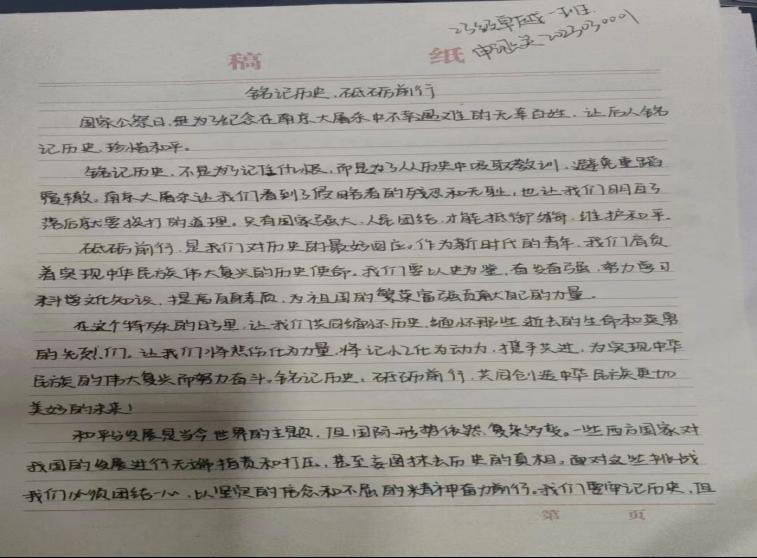 23级卓越一班
2023030001
稿 纸
铭记历史,砥砺前行
国家公祭日,是为了纪念在南京大屠杀中不幸遇难的无辜百姓,让后人铭
记历史,珍惜和平。
铭记历史,不是为了记住仇恨,而是为了从历史中吸取教训,避免重蹈
覆辙。南京大屠杀让我们看到了侵略者的残忍和无耻,也让我们明白了
落后就要挨打的道理。只有国家强大,人民团结,才能抵御外侮,维护和平。
砥砺前行,是我们对历史的最好回应。作为新时代的青年,我们肩负
着实现中华民族伟大复兴的历史使命。我们要以史为鉴,奋发图强,努力学习
科学文化知识,提高自身素质,为祖国的繁荣富强贡献自己的力量。
在这个特殊的日子里,让我们共同缅怀历史,缅怀那些逝去的生命和英勇
的先烈们。让我们将悲伤化为力量,将记忆化为动力,携手共进,为实现中华
民族的伟大复兴而努力奋斗。铭记历史,砥砺前行,共同创造中华民族更加
美好的未来!
和平与发展是当今世界的主题,但国际形势依然复杂多变。一些西方国家对
我国的发展进行无端指责和打压,甚至妄图抹去历史的真相。面对这些挑战
我们必须团结一心,以坚定的信念和不屈的精神奋力前行。我们要牢记历史,但
第 页